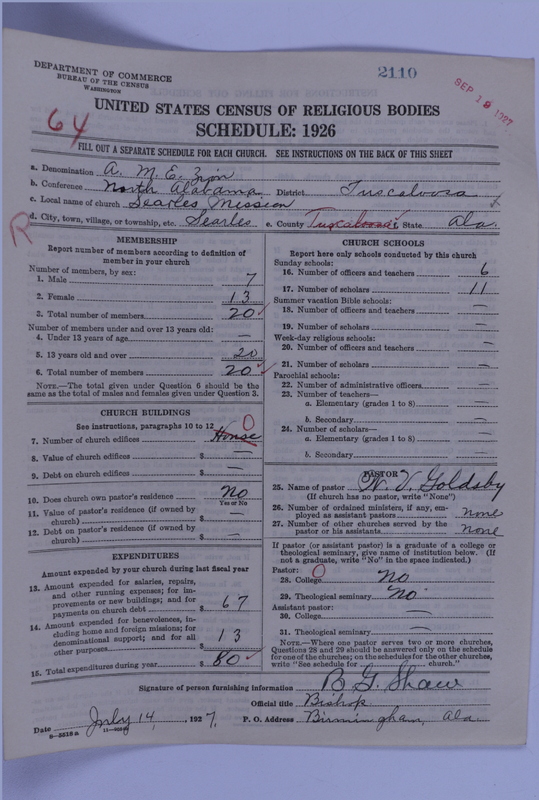 DEPARTMENT OF COMMERCE
BUREAU OF THE CENSUS
WASHINGTON
2110
SEP 19 1927
64
UNITED STATES CENSUS OF RELIGIOUS BODIES
SCHEDULE: 1926
FILL OUT A SEPARATE SCHEDULE FOR EACH CHURCH. SEE INSTRUCTIONS ON THE BACK OF THIS SHEET
a. Denomination A. M. E. Zion
b. Conference North Alabama District Tuscaloosa
c. Local name of church Searles Mission
d. City, town, village, or township, etc. Searles e. County Tuscaloosa State Ala.
R
MEMBERSHIP
Report number of members according to definition of member in your church
Number of members, by sex:
1. Male 7
2. Female 13
3. Total number of members 20
Number of members under and over 13 years old:
4. Under 13 years of age —
5. 13 years old and over 20
6. Total number of members 20
NOTE.—The total given under Question 6 should be the same as the total of males and females given under Question 3.
CHURCH BUILDINGS
See instructions, paragraphs 10 to 12
0
7. Number of church edifices House
8. Value of church edifices $ —
9. Debt on church edifices $ —
10. Does church own pastor's residence No
Yes or No
11. Value of pastor's residence (if owned by church) $ —
12. Debt on pastor's residence (if owned by church) $ —
EXPENDITURES
Amount expended by your church during last fiscal year
13. Amount expended for salaries, repairs, and other running expenses; for improvements or new buildings; and for payments on church debt $ 67
14. Amount expended for benevolences, including home and foreign missions; for denominational support; and for all other purposes $ 13
15. Total expenditures during year $ 80
CHURCH SCHOOLS
Report here only schools conducted by this church
Sunday schools:
16. Number of officers and teachers 6
17. Number of scholars 11
Summer vacation Bible schools:
18. Number of officers and teachers —
19. Number of scholars —
Week-day religious schools:
20. Number of officers and teachers —
21. Number of scholars —
Parochial schools:
22. Number of administrative officers —
23. Number of teachers—
a. Elementary (grades 1 to 8) —
b. Secondary —
24. Number of scholars—
a. Elementary (grades 1 to 8) —
b. Secondary —
PASTOR
25. Name of pastor W. V. Goldsby
(If church has no pastor, write "None")
26. Number of ordained ministers, if any, employed as assistant pastors none
27. Number of other churches served by the pastor or his assistants none
If pastor (or assistant pastor) is a graduate of a college or theological seminary, give name of institution below. (If not a graduate, write "No" in the space indicated.)
Pastor: 0
28. College no
29. Theological seminary no
Assistant pastor:
30. College —
31. Theological seminary —
NOTE.—Where one pastor serves two or more churches, Questions 28 and 29 should be answered only on the schedule for one of the churches; on the schedules for the other churches, write "See schedule for ........ church."
Signature of person furnishing information B G Shaw
Official title Bishop
Date July 14, 1927. P. O. Address Birmingham, Ala
8-3516 a